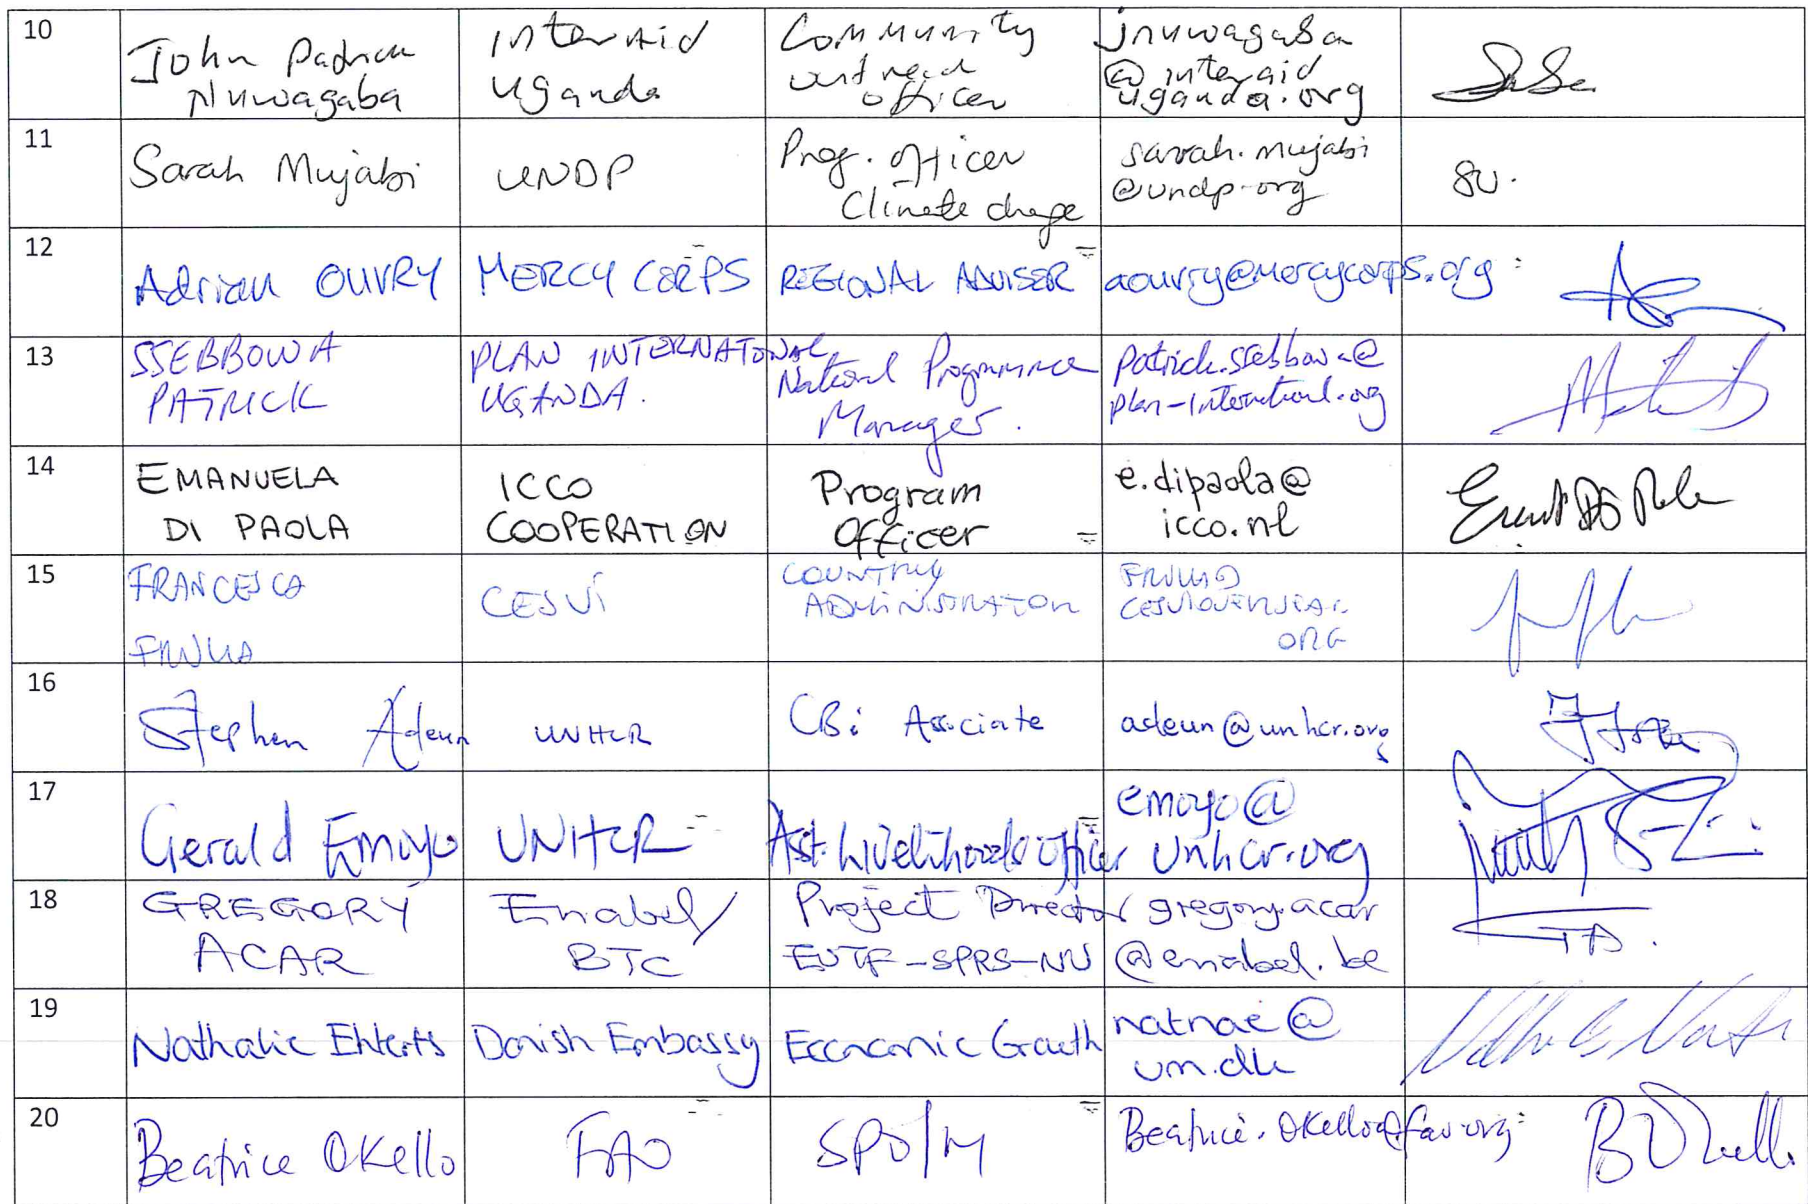 10
John Patrick
Nuwagaba
InterAid
Uganda
Community
outreach
officer
jnuwagaba
@interaid
uganda.org
11
Sarah Mujabi
UNDP
Prog. officer
Climate change
sarah.mujabi
@undp.org
12
Adrian OUVRY
MERCY CORPS
REGIONAL ADVISER
aouvry@mercycorps.org
13
SSEBBOWA
PATRICK
PLAN INTERNATIONAL
UGANDA.
National Programme
Manager.
patrick.ssebbowa@
plan-international.org
14
EMANUELA
DI PAOLA
ICCO
COOPERATION
Program
Officer
e.dipaola@
icco.nl
15
FRANCESCA
CESVI
COUNTRY
ADMINISTRATOR
ORG
16
Stephen Adeun
UNHCR
CBi Associate
adeun@unhcr.org
17
Gerald Emoyo
UNHCR
Asst. Livelihoods Officer
emoyo@
unhcr.org
18
GREGORY
ACAR
Enabel/
BTC
Project Director
EUTF-SPRS-NU
gregory.acar
@enabel.be
19
Nathalie
Danish Embassy
Economic Growth
natnae@
um.dk
20
Beatrice Okello
FAO
SPO/M
Beatrice.Okello@fao.org